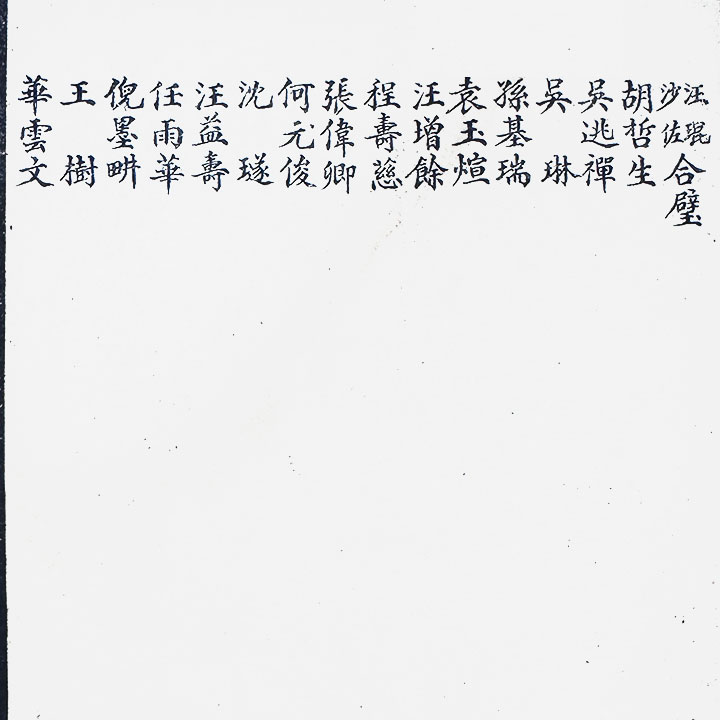 汪琨沙佐合璧
胡哲生
吳逃禪
吳琳
孫基瑞
袁玉煊
汪增餘
程壽慈
張偉卿
何元俊
沈璲
汪益壽
任雨華
倪墨畊
王樹
華雲文